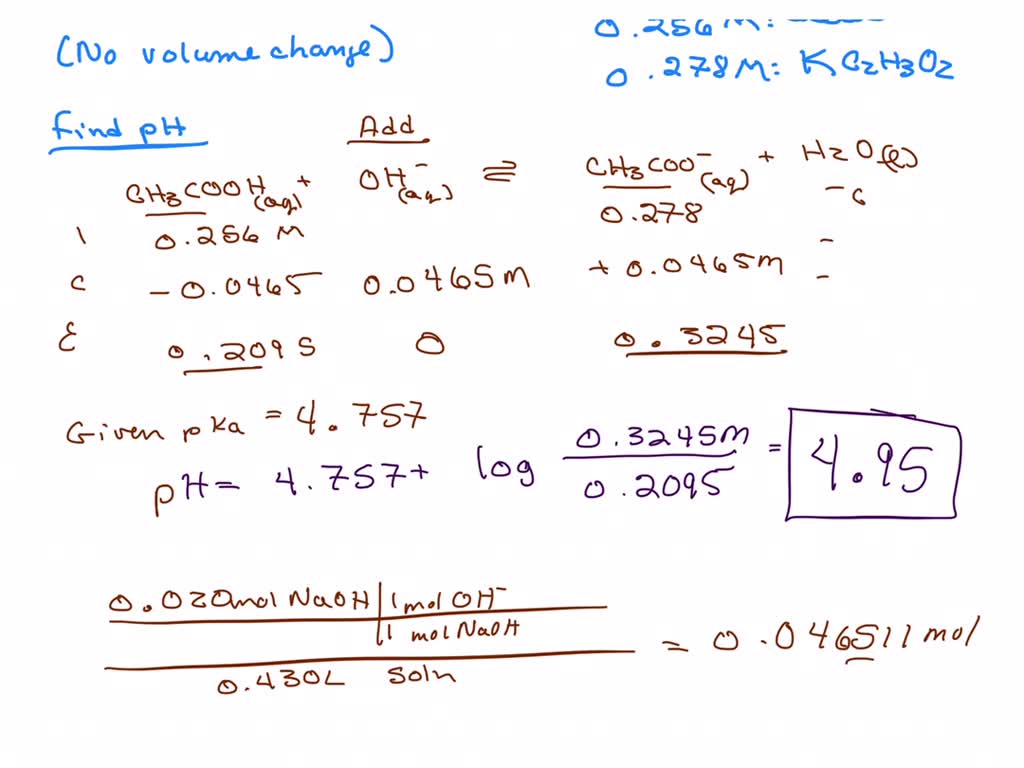 (No volume change)
0.256 M:
0.278 M: KC2H3O2
Find pH Add
CH3COOH(aq) + OH-(aq) ⇌ CH3COO-(aq) + H2O(l)
I 0.256 M 0.278 -
C -0.0465 0.0465M +0.0465M -
E 0.2095 0 0.3245 -
Given pKa = 4.757
pH = 4.757 + log 0.3245M / 0.2095 = 4.95
0.020mol NaOH | 1 mol OH-
1 mol NaOH
= 0.046511 mol
0.430L soln